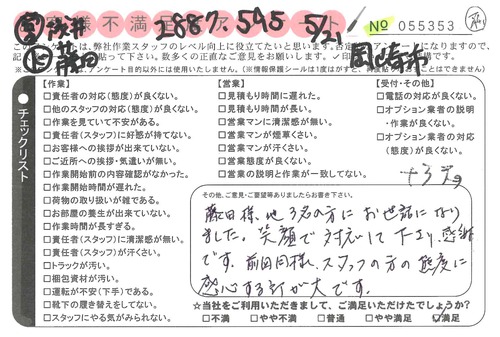 お客様不満足アンケート
㊢ 浅井 2887.595 5/21 № 055353
このアンケートは、弊社作業スタッフのレベル向上に役立てたいと思います。
㊞ 藤田 岡崎市
チェックリスト
【作業】
□責任者の対応(態度)が良くない。
□他のスタッフの対応(態度)が良くない。
□作業を見ていて不安がある。
□責任者(スタッフ)に好感が持てない。
□お客様への挨拶が出来ていない。
□ご近所への挨拶・気遣いが無い。
□作業開始前の内容確認がなかった。
□作業開始時間が遅れた。
□荷物の取り扱いが雑である。
□お部屋の養生が出来ていない。
□作業時間が長すぎる。
□責任者(スタッフ)に清潔感が無い。
□責任者(スタッフ)が汗くさい。
□トラックが汚い。
□梱包資材が汚い。
□運転が不安(下手)である。
□靴下の履き替えをしてない。
□スタッフにやる気がみられない。
【営業】
□見積もり時間に遅れた。
□見積もり時間が長い。
□営業マンに清潔感が無い。
□営業マンが煙草くさい。
□営業マンが汗くさい。
□営業態度が良くない。
□営業の説明と作業が一致してない。
【受付・その他】
□電話の対応が良くない。
□オプション業者の説明
・作業が良くない。
□オプション業者の対応
(態度)が良くない。
その他、ご意見・ご要望等ありましたらお書き下さい。
藤田様、他3名の方にお世話になり
ました。笑顔で対応して下さり、感謝
です。前回同様、スタッフの方の態度に
感心する事が大です。
☆当社をご利用いただきまして、ご満足いただけたでしょうか?
□不満 □やや不満 □普通 □やや満足 ☑満足